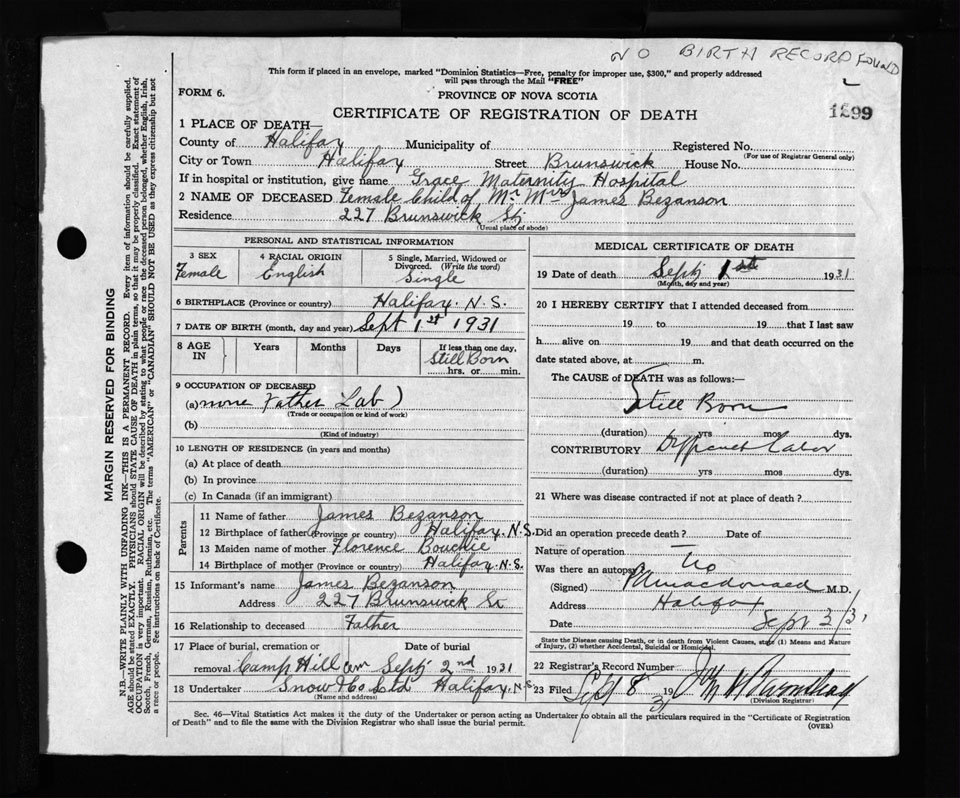 NO BIRTH RECORD FOUND
This form if placed in an envelope, marked "Dominion Statistics—Free, penalty for improper use, $300," and properly addressed
will pass through the Mail "FREE"
FORM 6.
PROVINCE OF NOVA SCOTIA
CERTIFICATE OF REGISTRATION OF DEATH
1 PLACE OF DEATH—
County of Halifax Municipality of Registered No.
(For use of Registrar General only)
City or Town Halifax Street Brunswick House No.
If in hospital or institution, give name Grace Maternity Hospital
2 NAME OF DECEASED Female Child of Mr Mrs James Bezanson
Residence 227 Brunswick St
(Usual place of abode)
PERSONAL AND STATISTICAL INFORMATION
3 SEX 4 RACIAL ORIGIN 5 Single, Married, Widowed or Divorced. (Write the word)
Female English Single
6 BIRTHPLACE (Province or country) Halifax. N.S.
7 DATE OF BIRTH (month, day and year) Sept 1st 1931
8 AGE IN Years Months Days If less than one day,
Still Born
hrs. or min.
9 OCCUPATION OF DECEASED
(a) none Father Lab)
(Trade or occupation or kind of work)
(b)
(Kind of industry)
10 LENGTH OF RESIDENCE (in years and months)
(a) At place of death
(b) In province
(c) In Canada (if an immigrant)
Parents
11 Name of father James Bezanson
12 Birthplace of father (Province or country) Halifax. N.S.
13 Maiden name of mother Florence Bouchie
14 Birthplace of mother (Province or country) Halifax. N.S.
15 Informant's name James Bezanson
Address 227 Brunswick St
16 Relationship to deceased Father
17 Place of burial, cremation or Date of burial
removal Camp Hill Cem Sept 2nd 1931
18 Undertaker Snow & Co Ltd Halifax. N.S.
(Name and address)
MEDICAL CERTIFICATE OF DEATH
19 Date of death Sept 1st 1931
(Month, day and year)
20 I HEREBY CERTIFY that I attended deceased from
19 to 19 that I last saw
h alive on 19 and that death occurred on the
date stated above, at m.
The CAUSE of DEATH was as follows:—
Still Born
(duration) yrs mos dys.
CONTRIBUTORY Labor
(duration) yrs mos dys.
21 Where was disease contracted if not at place of death?
Did an operation precede death? Date of
Nature of operation
Was there an autopsy No
(Signed) Macdonald M.D.
Address Halifax
Date Sept 3/31
State the Disease causing Death, or in death from Violent Causes, state (1) Means and Nature
of Injury, (2) whether Accidental, Suicidal or Homicidal.
22 Registrar's Record Number
23 Filed Sept 8 1931
(Division Registrar)
Sec. 46—Vital Statistics Act makes it the duty of the Undertaker or person acting as Undertaker to obtain all the particulars required in the "Certificate of Registration
of Death" and to file the same with the Division Registrar who shall issue the burial permit.
(OVER)
MARGIN RESERVED FOR BINDING
N.B.—WRITE PLAINLY WITH UNFADING INK—THIS IS A PERMANENT RECORD. Every item of information should be carefully supplied.
AGE should be stated EXACTLY. PHYSICIANS should STATE CAUSE OF DEATH in plain terms, so that it may be properly classified. Exact statement of
OCCUPATION is very important. RACIAL ORIGIN will be described by stating to what people or race the deceased person belonged, whether English, Irish,
Scotch, French, German, Russian, Ruthenian, etc. The terms "AMERICAN" or "CANADIAN" SHOULD NOT BE USED as they express citizenship but not
a race or people. See instructions on back of Certificate.